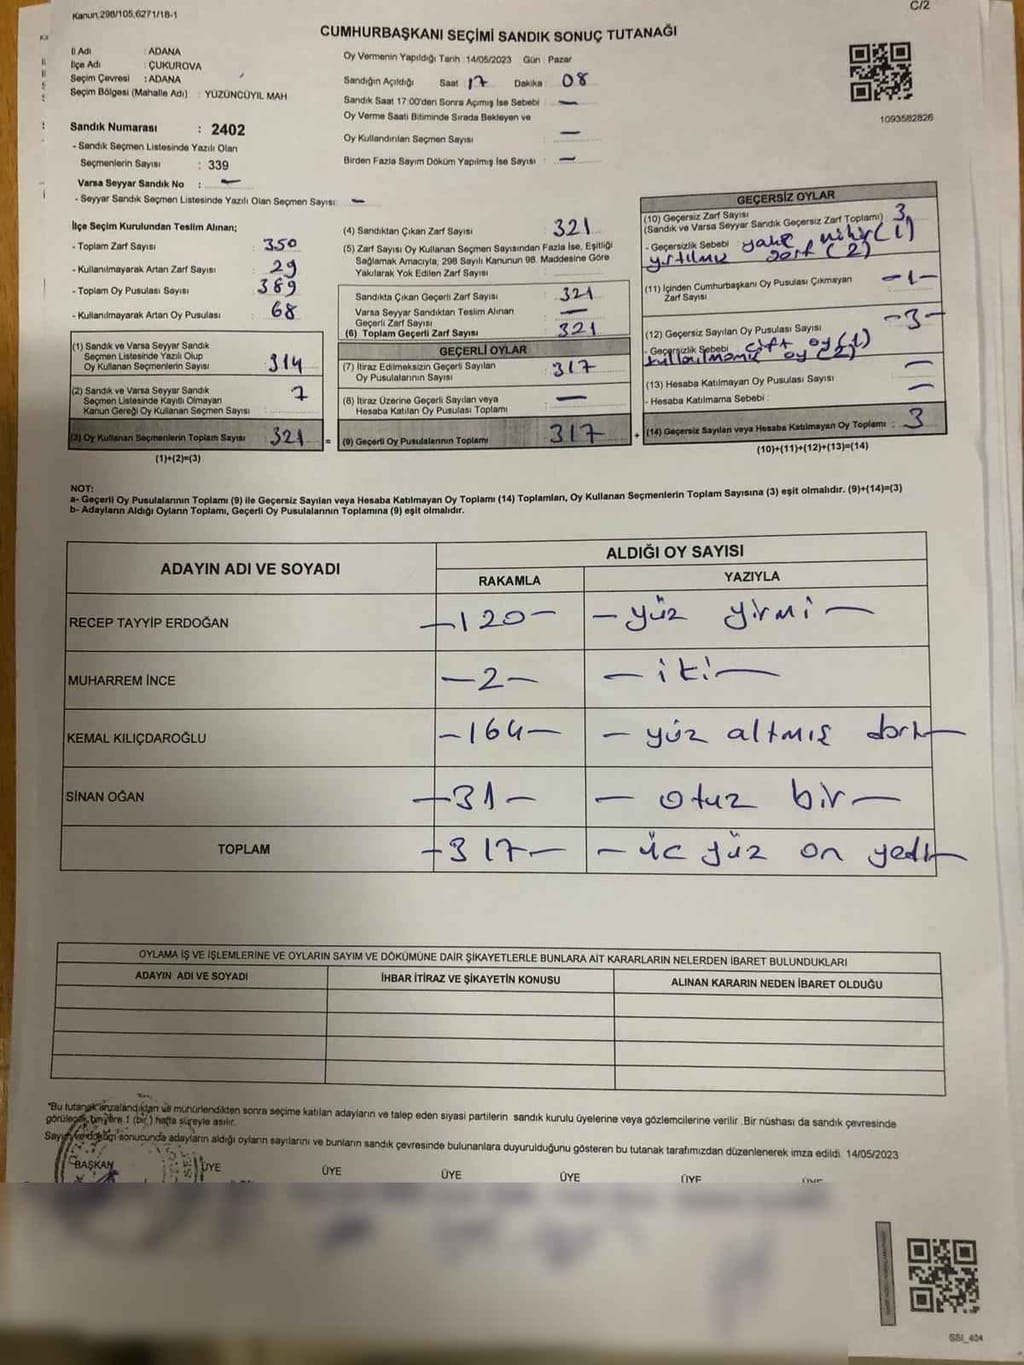 Kanun,298/105,6271/18-1
C/2
CUMHURBAŞKANI SEÇİMİ SANDIK SONUÇ TUTANAĞI
İl Adı : ADANA
İlçe Adı : ÇUKUROVA
Seçim Çevresi : ADANA
Seçim Bölgesi (Mahalle Adı) : YÜZÜNCÜYIL MAH
Sandık Numarası : 2402
- Sandık Seçmen Listesinde Yazılı Olan
Seçmenlerin Sayısı : 339
Varsa Seyyar Sandık No : —
- Seyyar Sandık Seçmen Listesinde Yazılı Olan Seçmen Sayısı: —
Oy Vermenin Yapıldığı Tarih : 14/05/2023 Gün : Pazar
Sandığın Açıldığı Saat 17 Dakika : 08
Sandık Saat 17:00'den Sonra Açımış İse Sebebi : —
Oy Verme Saati Bitiminde Sırada Bekleyen ve
Oy Kullandırılan Seçmen Sayısı : —
Birden Fazla Sayım Döküm Yapılmış İse Sayısı : —
1093582826
İlçe Seçim Kurulundan Teslim Alınan;
- Toplam Zarf Sayısı : 350
- Kullanılmayarak Artan Zarf Sayısı : 29
- Toplam Oy Pusulası Sayısı : 389
- Kullanılmayarak Artan Oy Pusulası : 68
(1) Sandık ve Varsa Seyyar Sandık
Seçmen Listesinde Yazılı Olup
Oy Kullanan Seçmenlerin Sayısı : 314
(2) Sandık ve Varsa Seyyar Sandık
Seçmen Listesinde Kayıtlı Olmayan
Kanun Gereği Oy Kullanan Seçmen Sayısı : 7
(3) Oy Kullanan Seçmenlerin Toplam Sayısı : 321 =
(1)+(2)=(3)
(4) Sandıktan Çıkan Zarf Sayısı : 321
(5) Zarf Sayısı Oy Kullanan Seçmen Sayısından Fazla İse, Eşitliği
Sağlamak Amacıyla, 298 Sayılı Kanunun 98. Maddesine Göre
Yakılarak Yok Edilen Zarf Sayısı :
Sandıkta Çıkan Geçerli Zarf Sayısı : 321
Varsa Seyyar Sandıktan Teslim Alınan
Geçerli Zarf Sayısı : —
(6) Toplam Geçerli Zarf Sayısı : 321
GEÇERLİ OYLAR
(7) İtiraz Edilmeksizin Geçerli Sayılan
Oy Pusulalarının Sayısı : 317
(8) İtiraz Üzerine Geçerli Sayılan veya
Hesaba Katılan Oy Pusulası Toplamı : —
(9) Geçerli Oy Pusulalarının Toplamı : 317 +
GEÇERSİZ OYLAR
(10) Geçersiz Zarf Sayısı : 3
(Sandık ve Varsa Seyyar Sandık Geçersiz Zarf Toplamı)
- Geçersizlik Sebebi : mühür (1)
yırtılmış zarf (2)
(11) İçinden Cumhurbaşkanı Oy Pusulası Çıkmayan
Zarf Sayısı : -1-
(12) Geçersiz Sayılan Oy Pusulası Sayısı : -3-
- Geçersizlik Sebebi : çift oy (1)
kullanılmamış oy (2)
(13) Hesaba Katılmayan Oy Pusulası Sayısı : —
- Hesaba Katılmama Sebebi : —
(14) Geçersiz Sayılan veya Hesaba Katılmayan Oy Toplamı : 3
(10)+(11)+(12)+(13)=(14)
NOT:
a- Geçerli Oy Pusulalarının Toplamı (9) ile Geçersiz Sayılan veya Hesaba Katılmayan Oy Toplamı (14) Toplamları, Oy Kullanan Seçmenlerin Toplam Sayısına (3) eşit olmalıdır. (9)+(14)=(3)
b- Adayların Aldığı Oyların Toplamı, Geçerli Oy Pusulalarının Toplamına (9) eşit olmalıdır.
ADAYIN ADI VE SOYADI
ALDIĞI OY SAYISI
RAKAMLA YAZIYLA
RECEP TAYYİP ERDOĞAN -120- - yüz yirmi -
MUHARREM İNCE -2- - iki -
KEMAL KILIÇDAROĞLU -164- - yüz altmış dört -
SİNAN OĞAN -31- - otuz bir -
TOPLAM -317- - üç yüz on yedi -
OYLAMA İŞ VE İŞLEMLERİNE VE OYLARIN SAYIM VE DÖKÜMÜNE DAİR ŞİKAYETLERLE BUNLARA AİT KARARLARIN NELERDEN İBARET BULUNDUKLARI
ADAYIN ADI VE SOYADI İHBAR İTİRAZ VE ŞİKAYETİN KONUSU ALINAN KARARIN NEDEN İBARET OLDUĞU
*Bu tutanak imzalandıktan ve mühürlendikten sonra seçime katılan adayların ve talep eden siyasi partilerin sandık kurulu üyelerine veya gözlemcilerine verilir. Bir nüshası da sandık çevresinde
görülecek bir yere 1 (bir) hafta süreyle asılır.
Sayım ve döküm sonucunda adayların aldığı oyların sayılarını ve bunların sandık çevresinde bulunanlara duyurulduğunu gösteren bu tutanak tarafımızdan düzenlenerek imza edildi. 14/05/2023
BAŞKAN ÜYE ÜYE ÜYE ÜYE ÜYE ÜYE
SSI_404